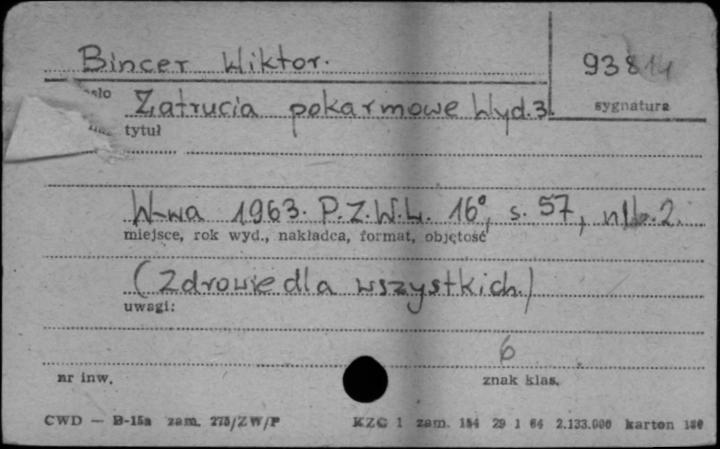 Bincer Wiktor.
93814
sygnatura
Zatrucia pokarmowe Wyd.3.
tytuł
W-wa 1963. P.Z.W.L. 16°, s. 57, nlb.2.
miejsce, rok wyd., nakładca, format, objętość
(Zdrowie dla wszystkich.)
uwagi:
6
nr inw.
znak klas.
CWD — B-15a zam. 275/ZW/P
KZG 1 zam. 154 29 1 64 2.133.000 karton